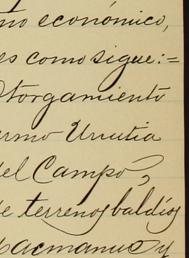 no económico,
es como sigue:=
Otorgamiento
ermo Urrutia
del Campo,
de terrenos baldíos
Macmanus y